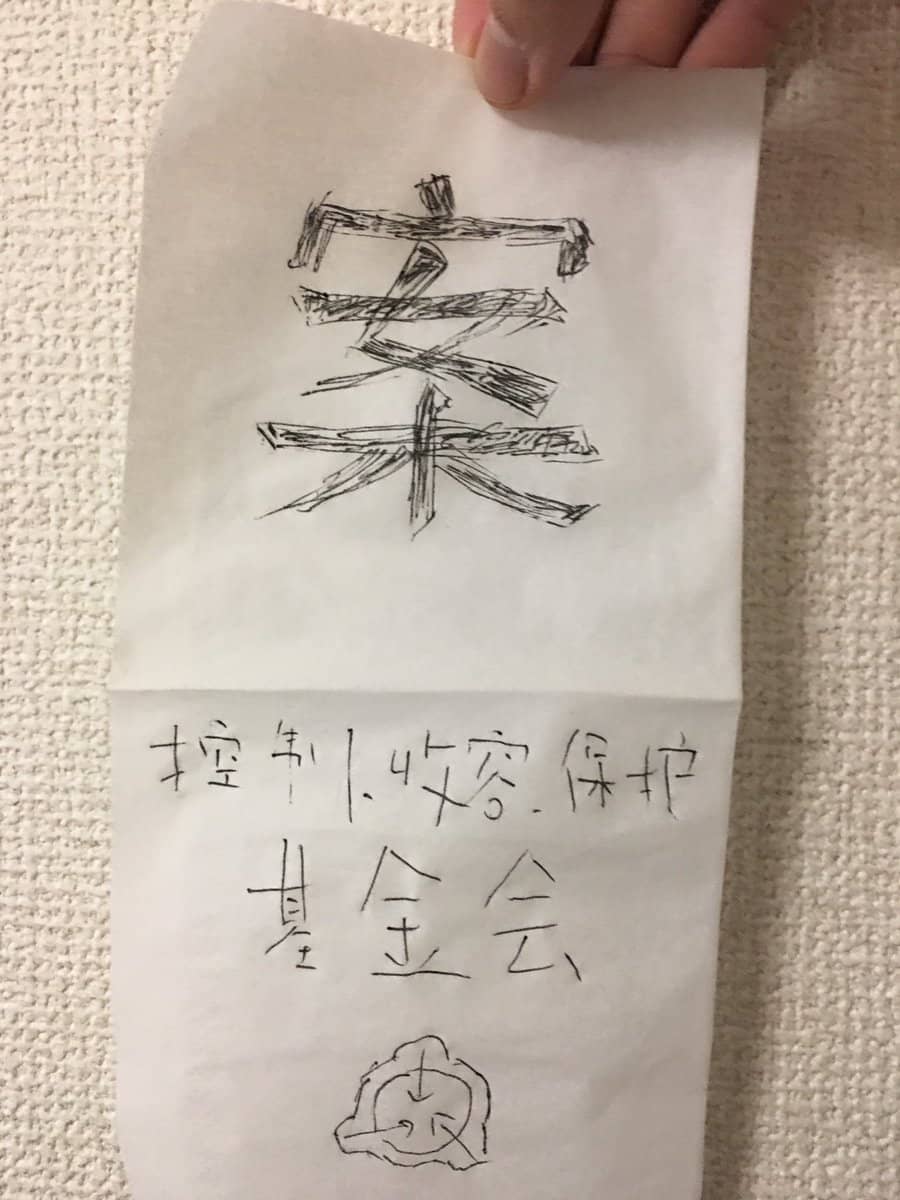 案
控制.收容.保护
基金会